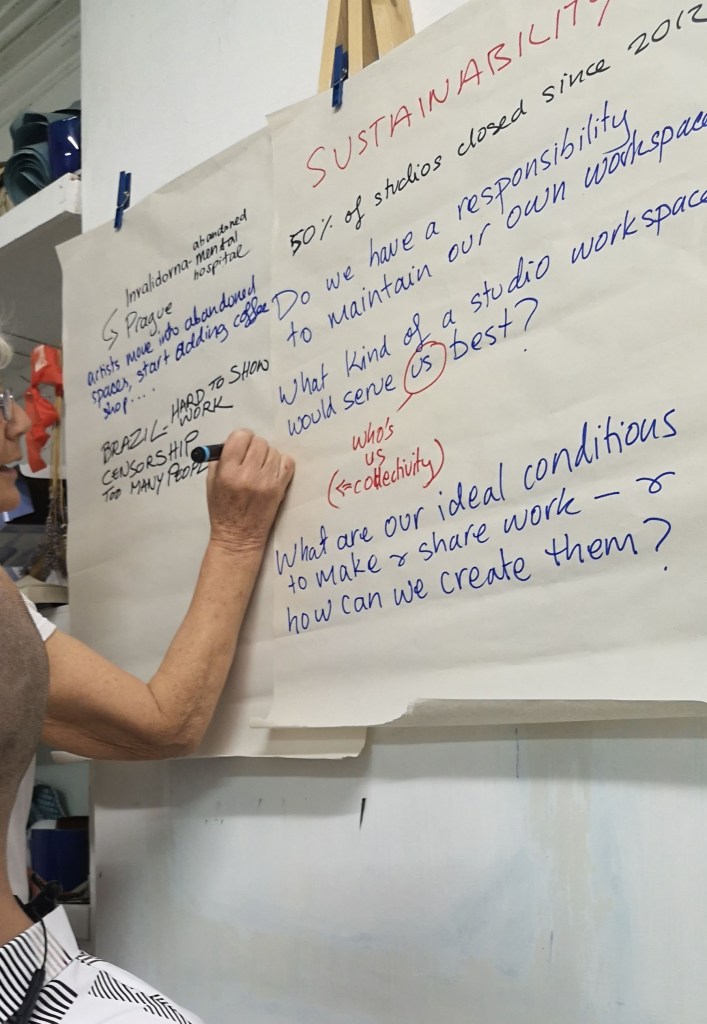 Invalidovna - abandoned
mental
hospital
↳ Prague
artists move into abandoned
spaces, start adding coffee
shop....
BRAZIL - HARD TO SHOW
WORK
CENSORSHIP
TOO MANY PEOPL
SUSTAINABILITY
50% of studios closed since 2012
Do we have a responsibility
to maintain our own workspace
What kind of a studio workspace
would serve us best?
who's
us
(⇐collectivity)
What are our ideal conditions
to make & share work - &
how can we create them?